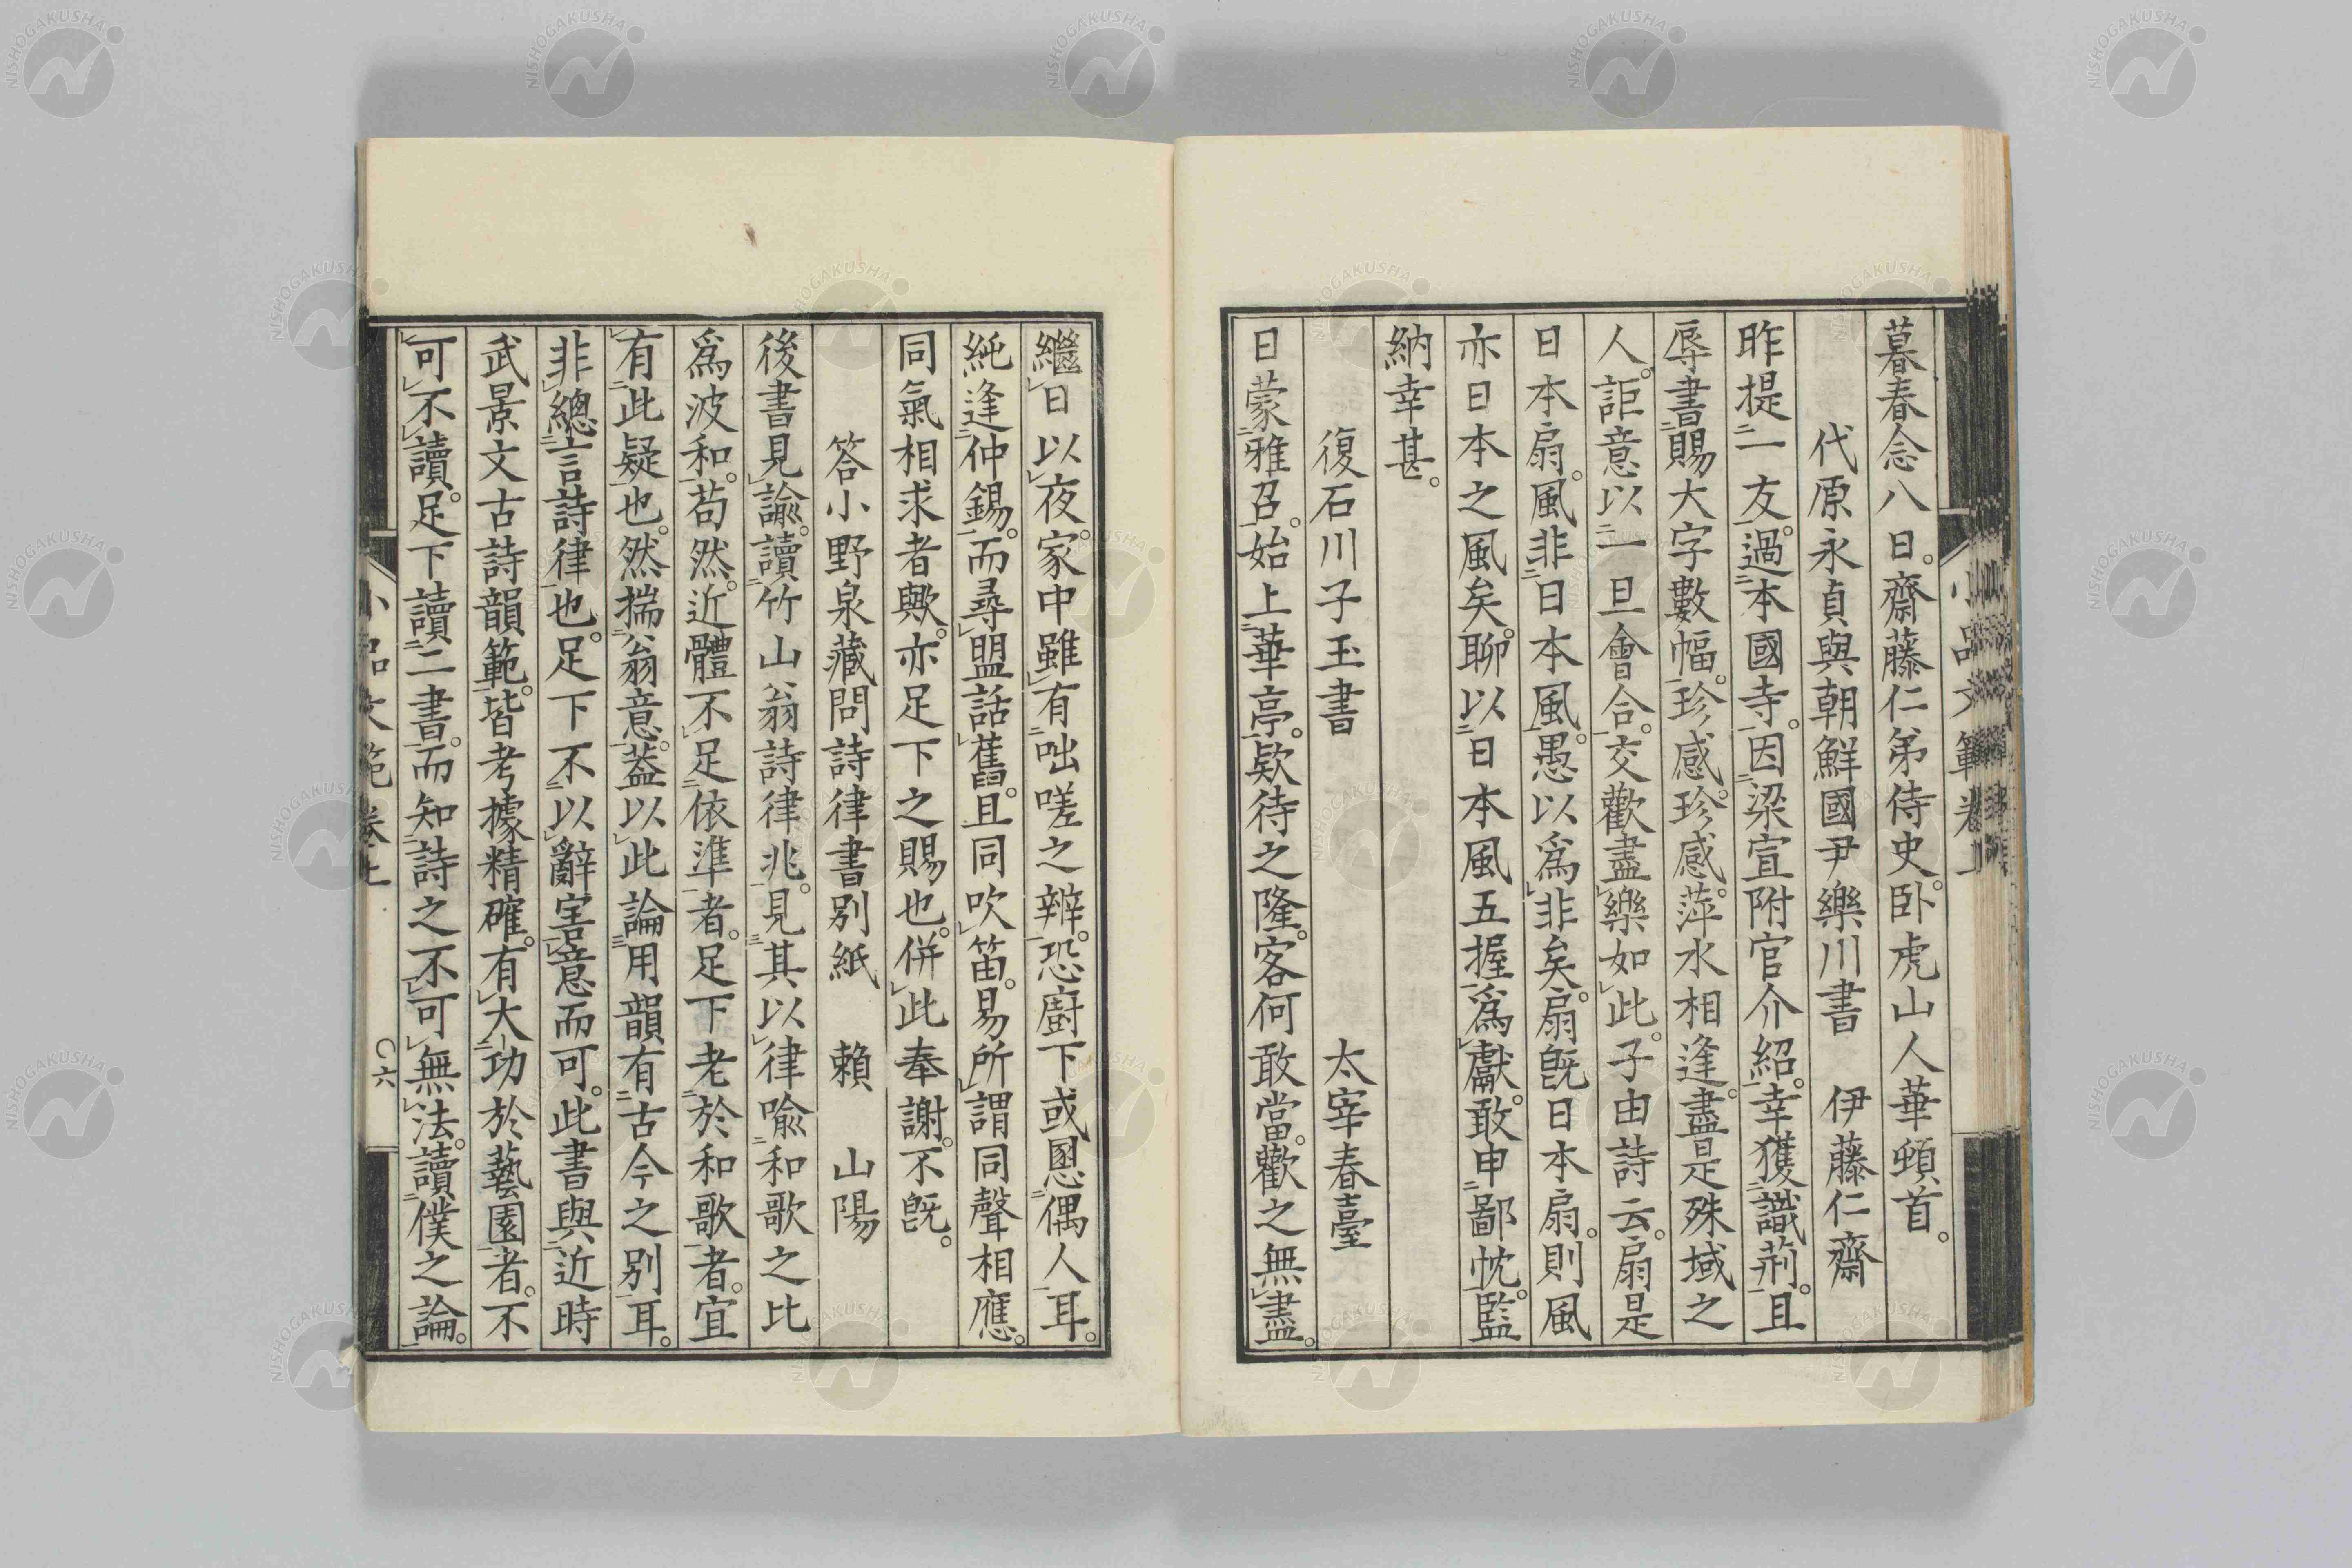 暮春念八日。齋藤仁弟侍史。卧虎山人華頓首。
代原永貞與朝鮮國尹樂川書　伊藤仁齋
昨提二一友一。過二本國寺一。因二梁宣附官介紹一。幸獲二識荊一。且
辱書二賜大字數幅一。珍感珍感。萍水相逢。盡是殊域之
人。詎意以二一旦會合一。交歡盡レ樂如レ此。子由詩云。扇是
日本扇。風非二日本風一。愚以爲レ非矣。扇旣日本扇。則風
亦日本之風矣。聊以二日本風五握一爲レ獻。敢申二鄙忱一。監
納幸甚。
復石川子玉書　太宰春臺
日蒙二雅召一。始上二華亭一。欵待之隆。客何敢當。歡之無レ盡。
繼レ日以レ夜。家中雖レ有二咄嗟之辨一。恐廚下或慁二偶人一耳。
純逢二仲錫一。而尋レ盟話レ舊。且同吹レ笛。易所レ謂同聲相應。
同氣相求者歟。亦足下之賜也。併レ此奉謝。不旣。
答小野泉藏問詩律書別紙　賴山陽
後書見レ諭。讀二竹山翁詩律兆一。見三其以レ律喩二和歌之比
爲波和一。苟然。近體不レ足二依準一者。足下老二於和歌一者。宜
有二此疑一也。然揣二翁意一。葢以レ此論三用韻有二古今之別一耳。
非レ總二言詩律一也。足下不二以レ辭害一レ意而可。此書與二近時
武景文古詩韻範一。皆考據精確。有レ大二功於藝園一者。不
可レ不レ讀。足下讀二二書一。而知二詩之不一レ可レ無レ法。讀二僕之論一。
小品文範卷上
六
小品文範卷上
NISHOGAKUSHA